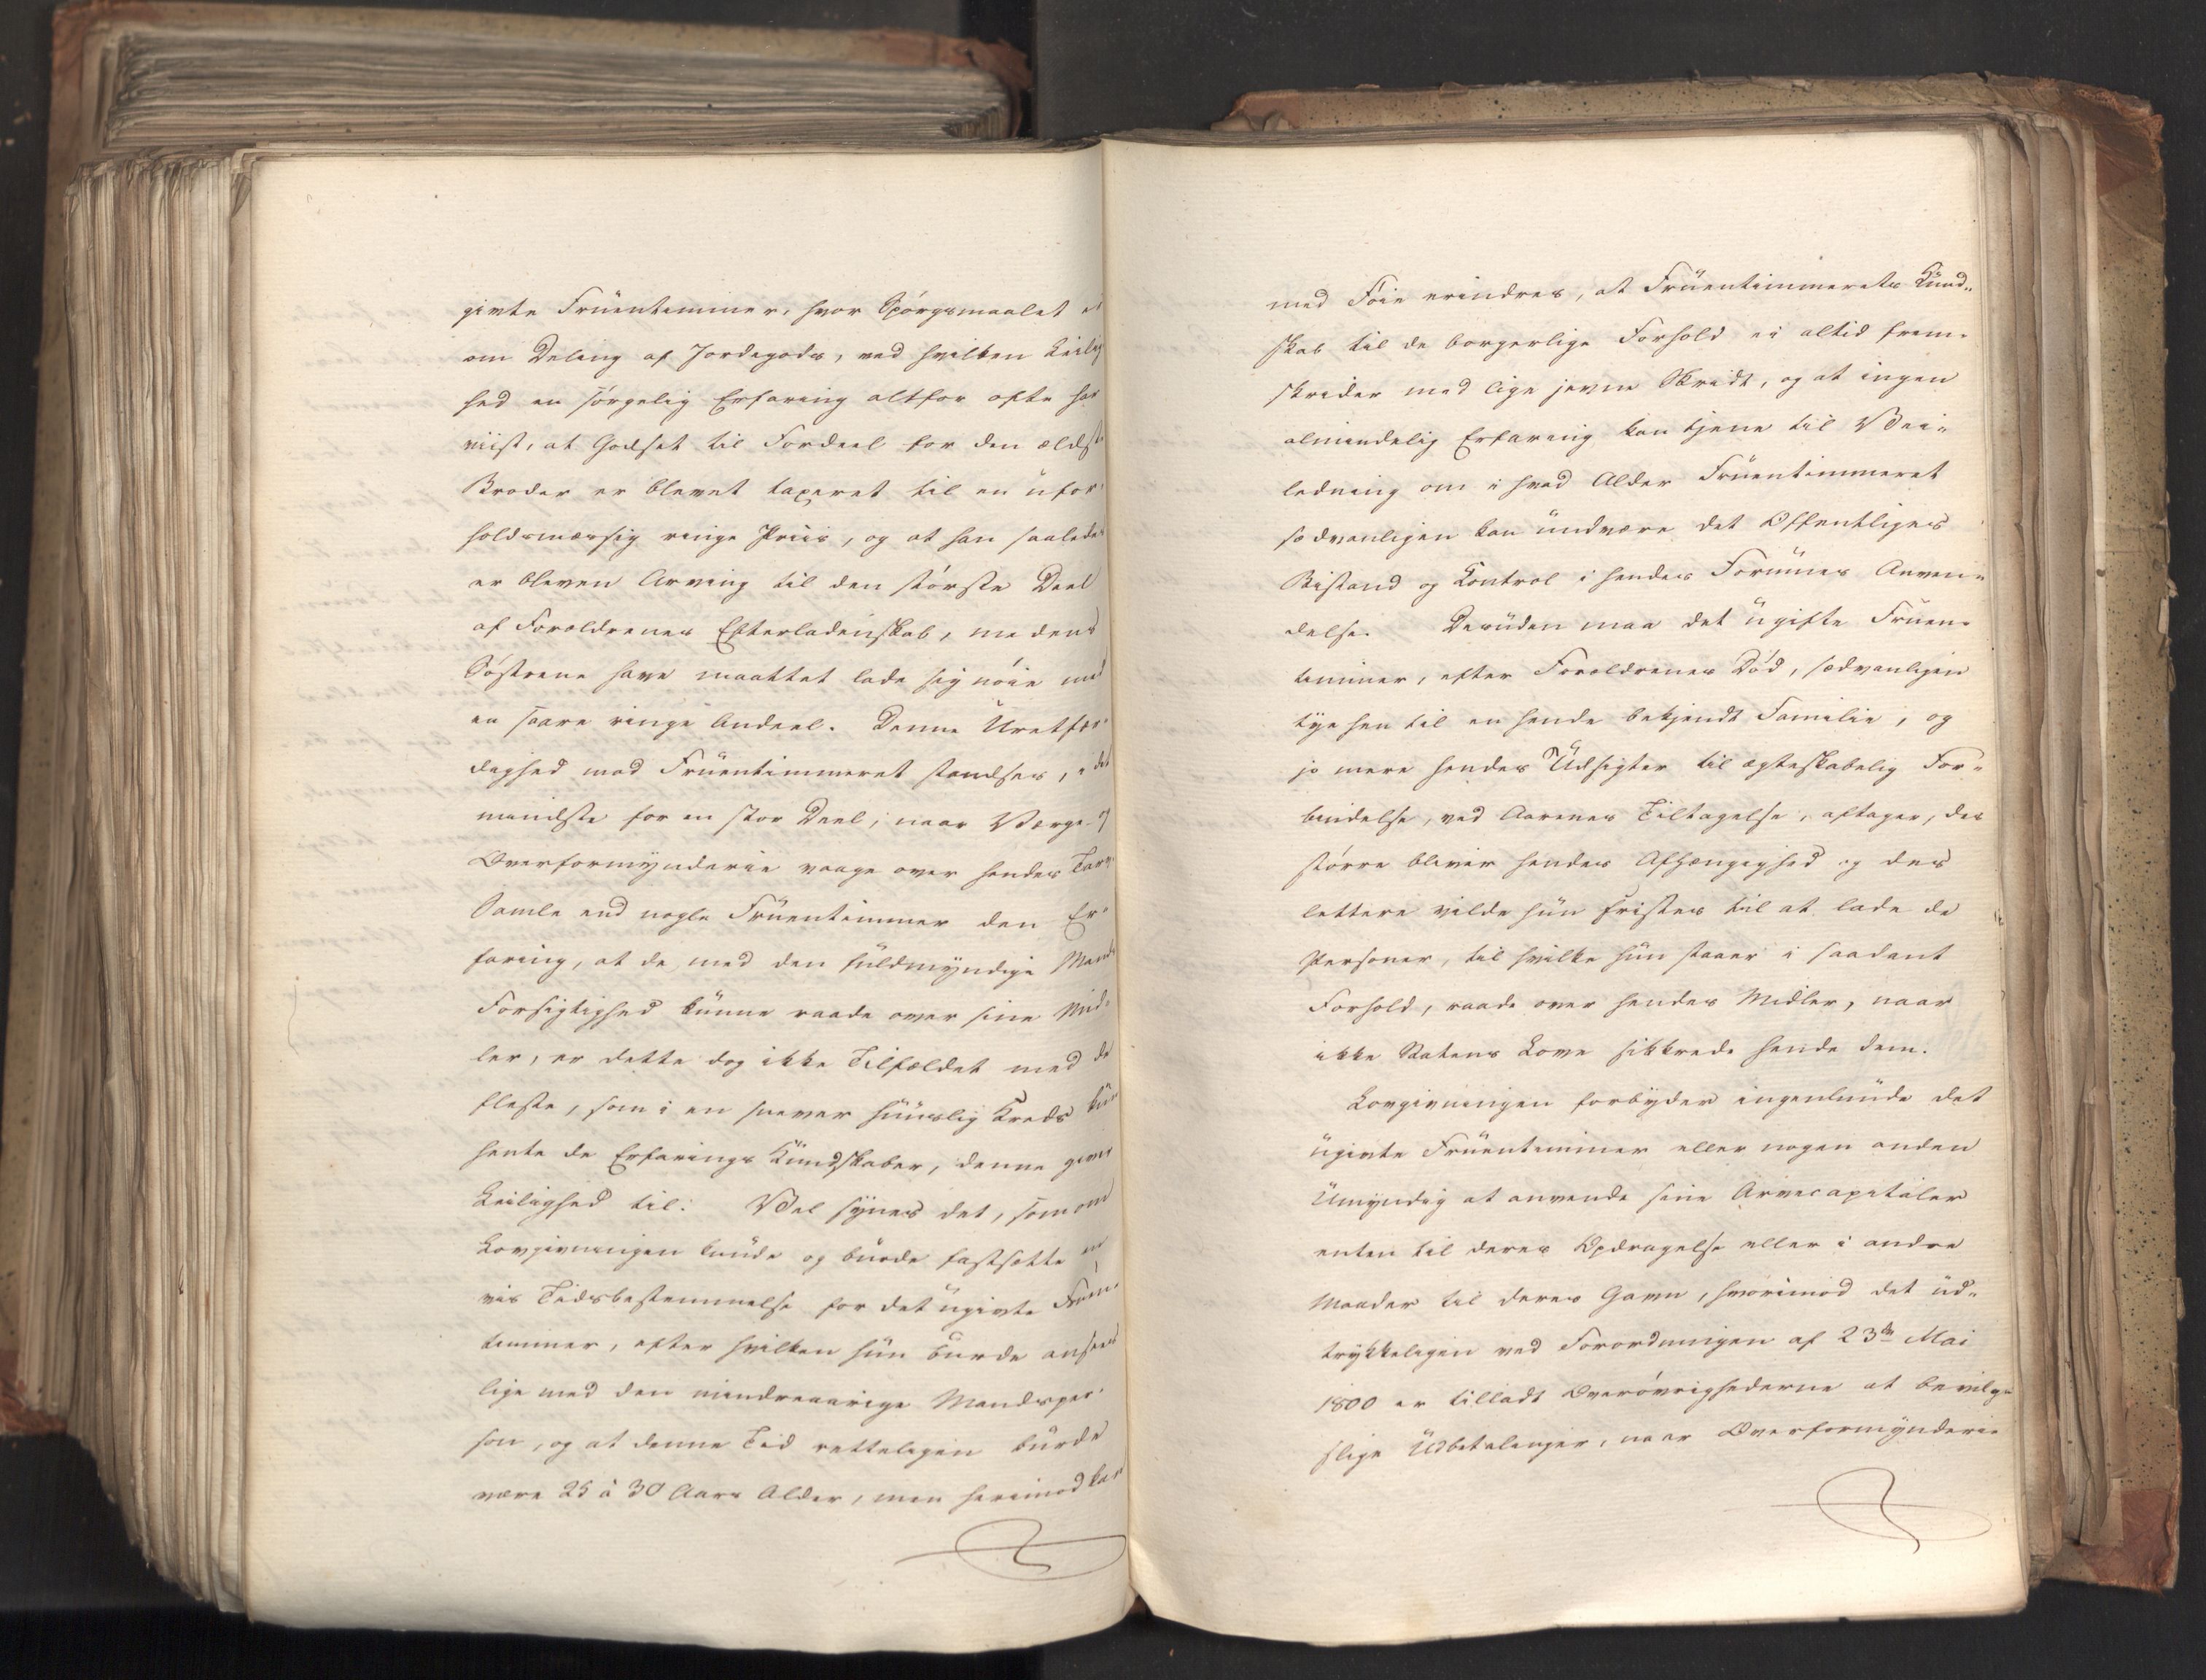 givte Fruentimmer, hvor Spörgsmaalet er
om Deling af Jordegods, ved hvilken Leilig
hed en sörgelig Erfaring altfor ofte har
viist, at Godset til Fordeel for den ældste
Broder er blevet taxeret til en ufor-
holdsmæssig ringe Priis, og at han saaledes
er bleven Arving til den störste Deel
af Forældrenes Efterladenskab, medens
Söstrene have maattet lade sig nöie med
en saare ringe Andeel. Denne Uretfær-
dighed mod Fruentimmeret standses, i det
mindste for en stor Deel, naar Værge- og
Overformynderie vaage over hendes Tarv.
Samle end nogle Fruentimmer den Er-
faring, at de med den fuldmyndige Mands
Forsigtighed kunne raade over sine Mid-
ler, er dette dog ikke Tilfældet med de
fleste, som i en snever huuslig Kreds kun
hente de Erfarings Kundskaber, denne giver
Leilighed til. Vel synes det, som om
Lovgivningen kunde og burde fastsætte en
vis Tidsbestemmelse for det ugivte Fruen-
timmer, efter hvilken hun burde ansees
lige med den mindreaarige Mandsper-
son, og at denne Tid rettelligen burde
være 25 à 30 Aars Alder, men herimod kan
med Föie erindres, at Fruentimmerets Kund-
skab til de borgerlige Forhold ei altid frem-
skrider med lige jevne Skridt, og at ingen
almindelig Erfaring kan tjene til Vei-
ledning om i hvad Alder Fruentimmeret
sædvanligen kan undvære det Offentliges
Bistand og Control i hendes Formues Anven-
delse. Desuden maa det ugifte Fruen-
timmer, efter Forældrenes Död, sædvanligen
tye hen til en hende bekjendt Familie, og
jo mere hendes Udsigter til ægteskabelig For-
bindelse, ved Aarenes Tiltagelse, aftager, des
större bliver hendes Afhængighed og des
lettere vilde hun fristes til at lade de
Personer, til hvilke hun staaer i saadant
Forhold, raade over hendes Midler, naar
ikke Statens Love sikkrede hende dem.
Lovgivningen forbyder ingenlunde det
ugivte Fruentimmer eller nogen anden
Umyndig at anvende sine Arvecapitaler
enten til deres Opdragelse eller i andre
Maader til deres Gavn, hvorimod det ud-
trykkeligen ved Forordningen af 23de Mai
1800 er tilladt Överövrighederne at bevilge
slige Udbetalinger, naar Overformynderie